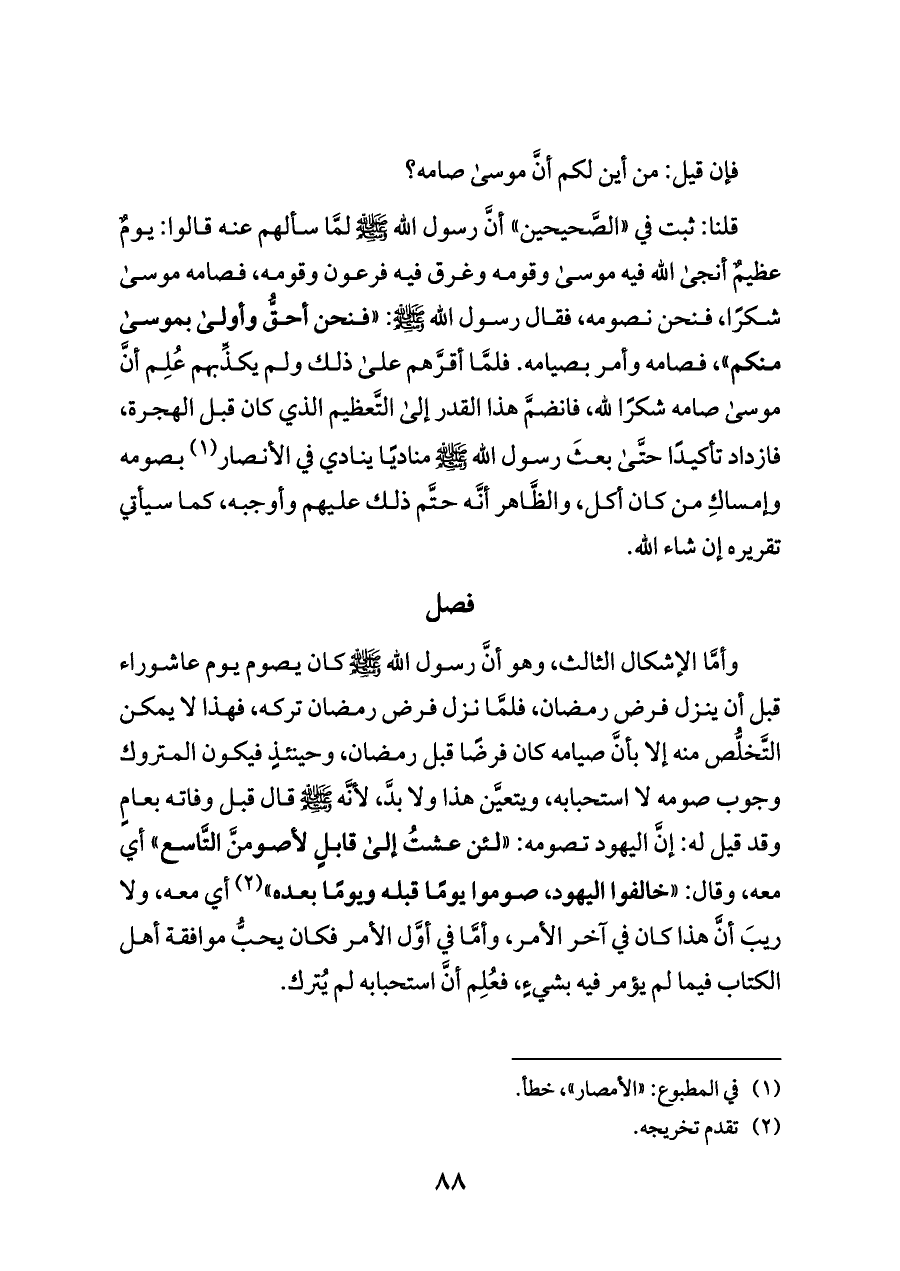 فإن قيل: من أين لكم أنَّ موسىٰ صامه؟
قلنا: ثبت في «الصَّحيحين» أنَّ رسول الله ﷺ لمَّا سألهم عنه قالوا: يومٌ
عظيمٌ أنجىٰ الله فيه موسىٰ وقومه وغرق فيه فرعون وقومه، فصامه موسىٰ
شكرًا، فنحن نصومه، فقال رسول الله ﷺ: «فنحن أحقُّ وأولىٰ بموسىٰ
منكم»، فصامه وأمر بصيامه. فلمَّا أقرَّهم علىٰ ذلك ولم يكذِّبهم عُلِم أنَّ
موسىٰ صامه شكرًا لله، فانضمَّ هذا القدر إلىٰ التَّعظيم الذي كان قبل الهجرة،
فازداد تأكيدًا حتَّىٰ بعثَ رسول الله ﷺ مناديًا ينادي في الأنصار(١) بصومه
وإمساكِ من كان أكل، والظَّاهر أنَّه حتَّم ذلك عليهم وأوجبه، كما سيأتي
تقريره إن شاء الله.
فصل
وأمَّا الإشكال الثالث، وهو أنَّ رسول الله ﷺ كان يصوم يوم عاشوراء
قبل أن ينزل فرض رمضان، فلمَّا نزل فرض رمضان تركه، فهذا لا يمكن
التَّخلُّص منه إلا بأنَّ صيامه كان فرضًا قبل رمضان، وحينئذٍ فيكون المتروك
وجوب صومه لا استحبابه، ويتعيَّن هذا ولا بدَّ، لأنَّه ﷺ قال قبل وفاته بعامٍ
وقد قيل له: إنَّ اليهود تصومه: «لئن عشتُ إلىٰ قابلٍ لأصومنَّ التَّاسع» أي
معه، وقال: «خالفوا اليهود، صوموا يومًا قبله ويومًا بعده»(٢) أي معه، ولا
ريبَ أنَّ هذا كان في آخر الأمر، وأمَّا في أوَّل الأمر فكان يحبُّ موافقة أهل
الكتاب فيما لم يؤمر فيه بشيءٍ، فعُلِم أنَّ استحبابه لم يُترك.
(١) في المطبوع: «الأمصار»، خطأ.
(٢) تقدم تخريجه.
٨٨